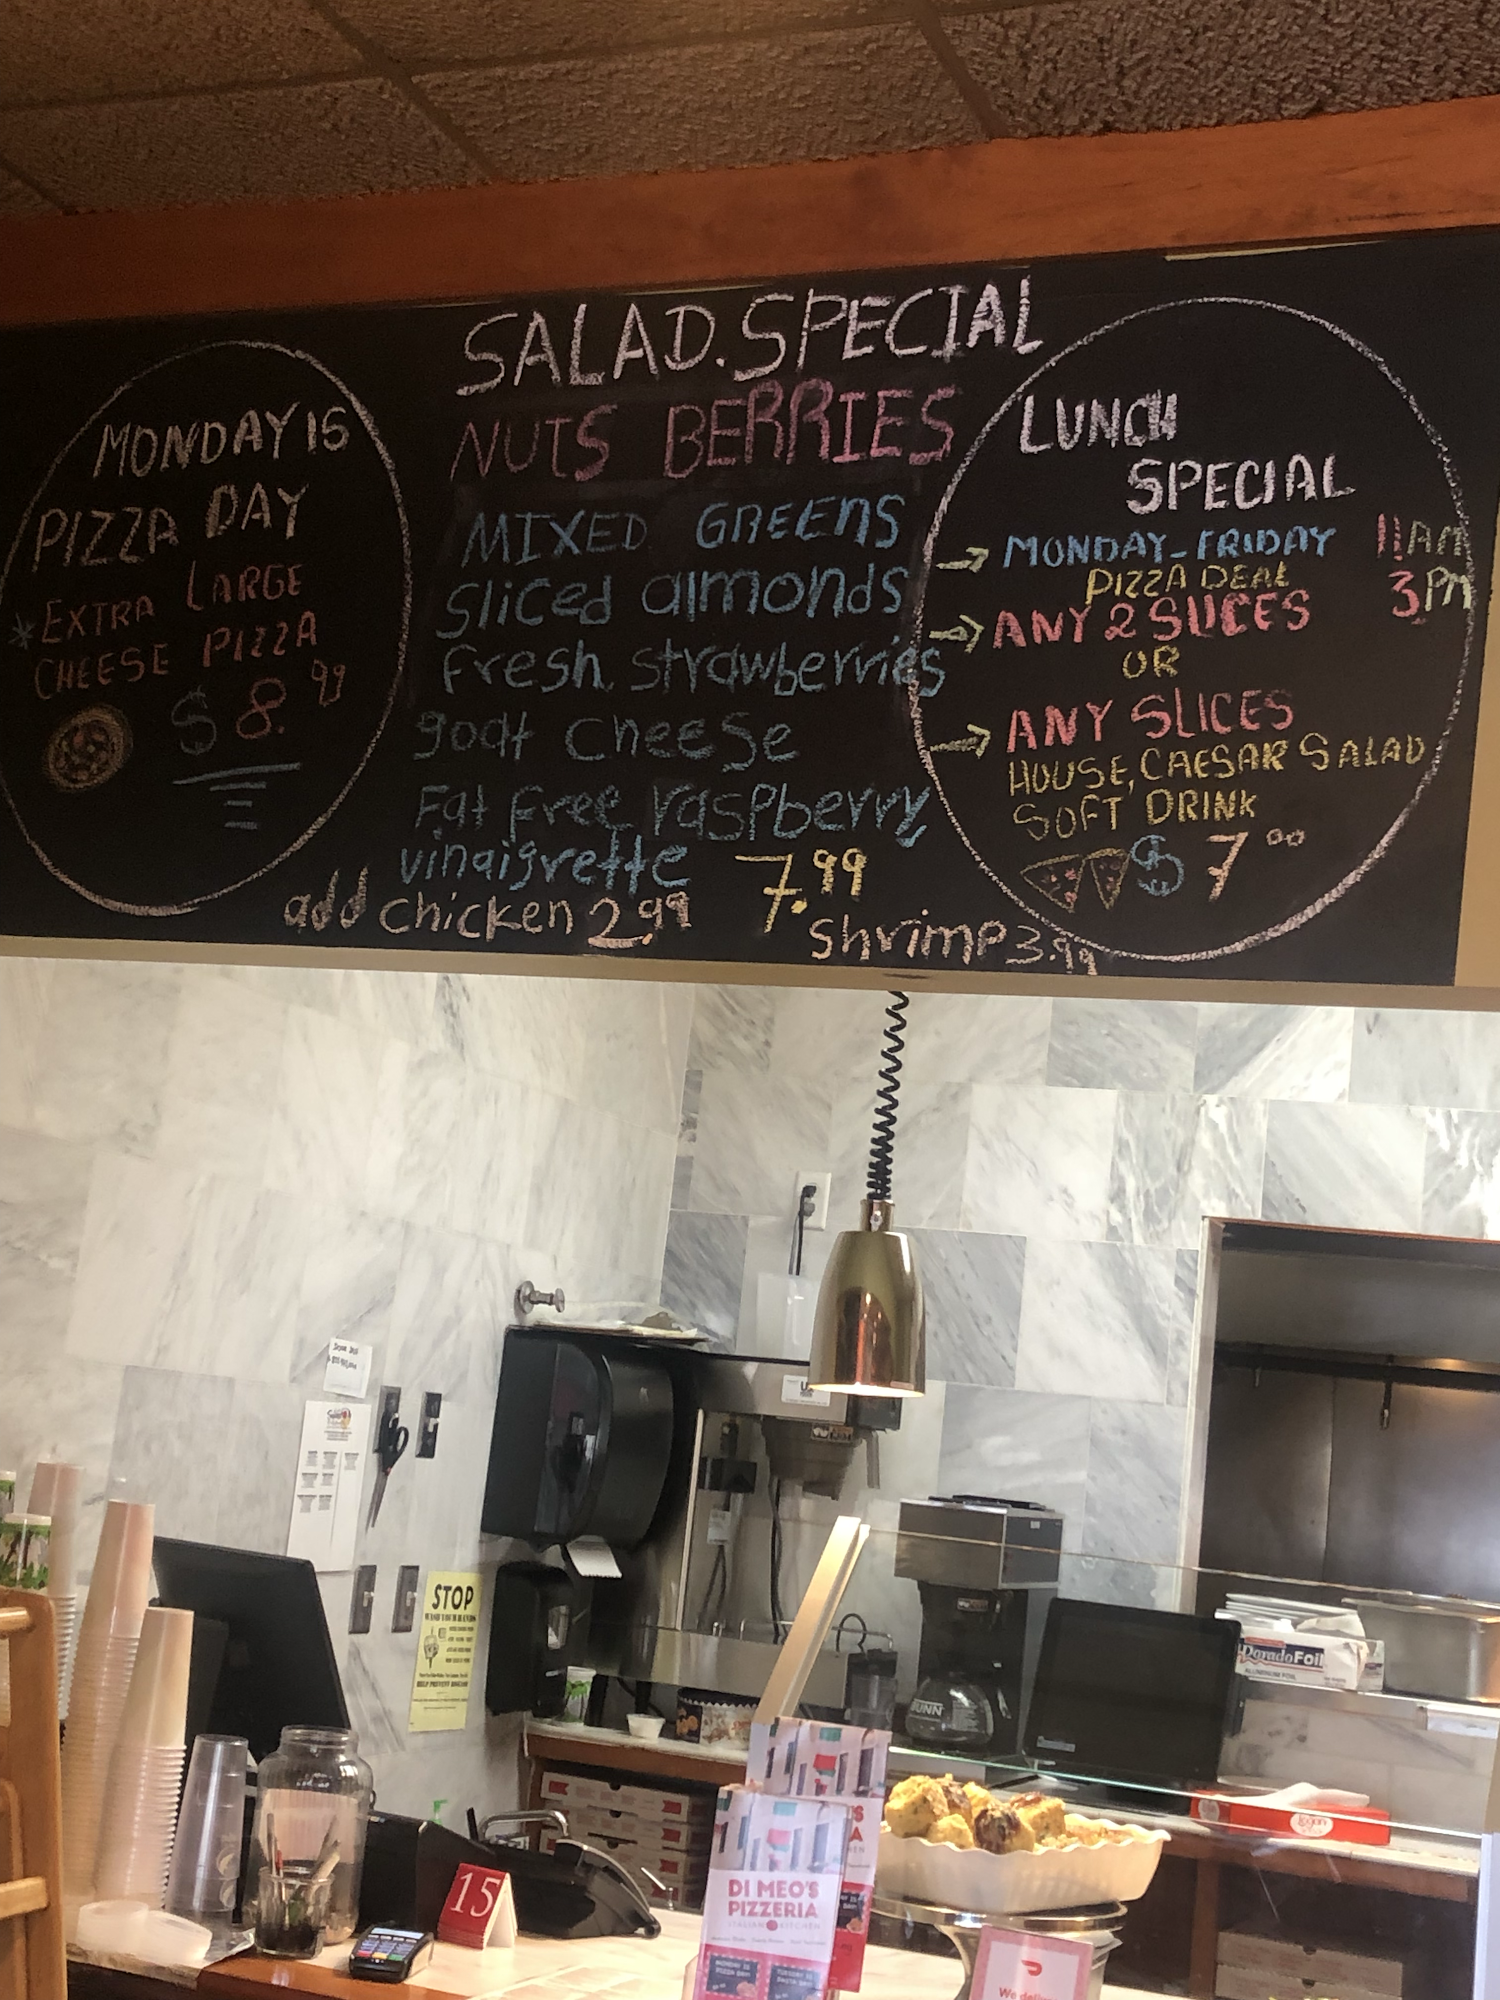 MONDAY IS
PIZZA DAY
*EXTRA LARGE
CHEESE PIZZA
$ 8.99
SALAD.SPECIAL
NUTS BERRIES
MIXED GREENS
Sliced almonds
Fresh strawberries
goat cheese
Fat free raspberry
vinaigrette 7.99
add chicken 2.99
shrimp 3.99
LUNCH
SPECIAL
MONDAY-FRIDAY 11AM
PIZZA DEAL 3PM
ANY 2 SLICES
OR
ANY SLICES
HOUSE, CAESAR SALAD
SOFT DRINK
$ 7.00
STOP
WASH YOUR HANDS
HELP PREVENT DISEASE
BUNN
DoradoFoil
ALUMINUM FOIL
15
DI MEO'S
PIZZERIA
ITALIAN KITCHEN
MONDAY IS
PIZZA DAY
TUESDAY IS
PASTA DAY